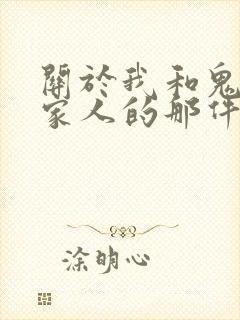 關於我和鬼
家人的那件
涂明心